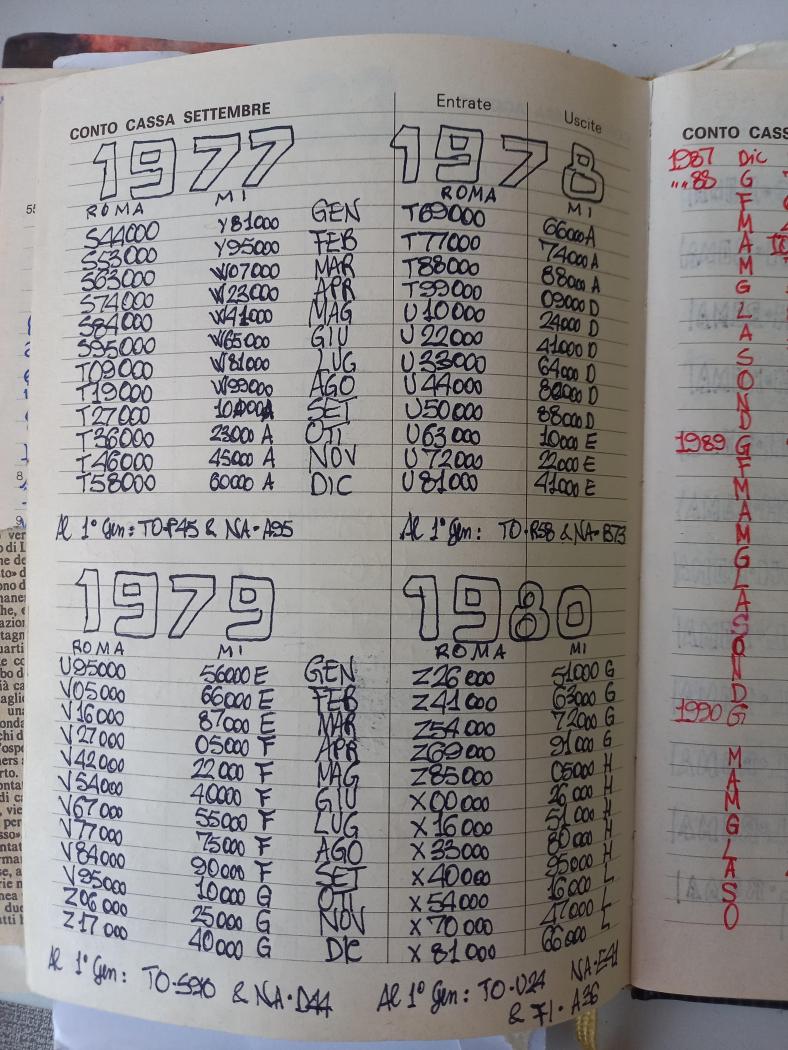 CONTO CASSA SETTEMBRE Entrate Uscite
1977 1978
ROMA MI ROMA MI
S44000 Y81000 GEN T69000 66000A
S53000 Y95000 FEB T77000 74000A
S63000 W07000 MAR T88000 88000A
S74000 W23000 APR T99000 09000D
S84000 W41000 MAG U10000 24000D
S95000 W65000 GIU U22000 41000D
T09000 W81000 LUG U33000 64000D
T19000 W99000 AGO U44000 82000D
T27000 10000A SET U50000 88000D
T36000 23000 A OTT U63000 10000E
T46000 45000 A NOV U72000 22000E
T58000 60000 A DIC U81000 41000E
Al 1° Gen: TO-P45 & NA-A95 Al 1° Gen: TO-R58 & NA-B73
1979 1980
ROMA MI ROMA MI
U95000 56000E GEN Z26000 51000G
V05000 66000E FEB Z41000 63000G
V16000 87000E MAR Z54000 72000G
V27000 05000F APR Z69000 91000G
V42000 22000F MAG Z85000 05000H
V54000 40000F GIU X00000 26000H
V67000 55000F LUG X16000 51000H
V77000 75000F AGO X33000 80000H
V84000 90000F SET X40000 95000H
V95000 10000G OTT X54000 16000L
Z06000 25000G NOV X70000 47000L
Z17000 40000G DIC X81000 66000L
Al 1° Gen: & NA-D44 Al 1° Gen: TO-U24 NA-E41
& FI-A36
CONTO CASS
1987 Dic
""88 G
F
M
A
M
G
L
A
S
O
N
D
1989 G
F
M
A
M
G
L
A
S
O
N
D
1990 G
M
A
M
G
L
A
S
O